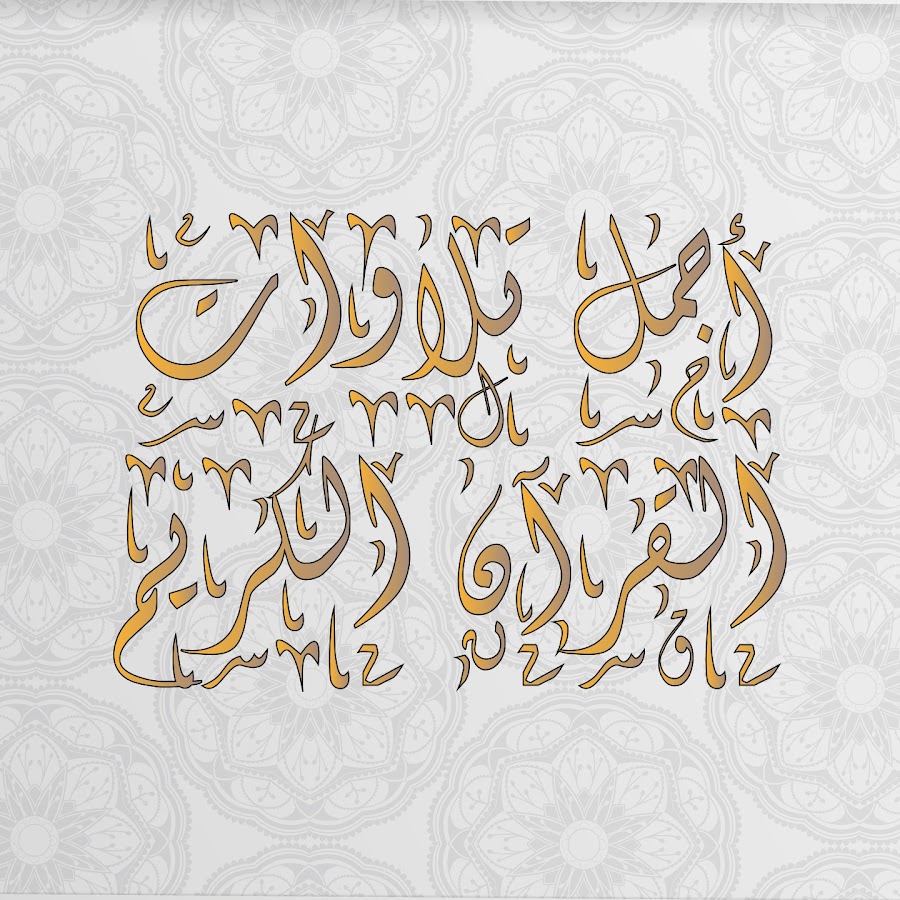 أجمل تلاوات
القرآن الكريم